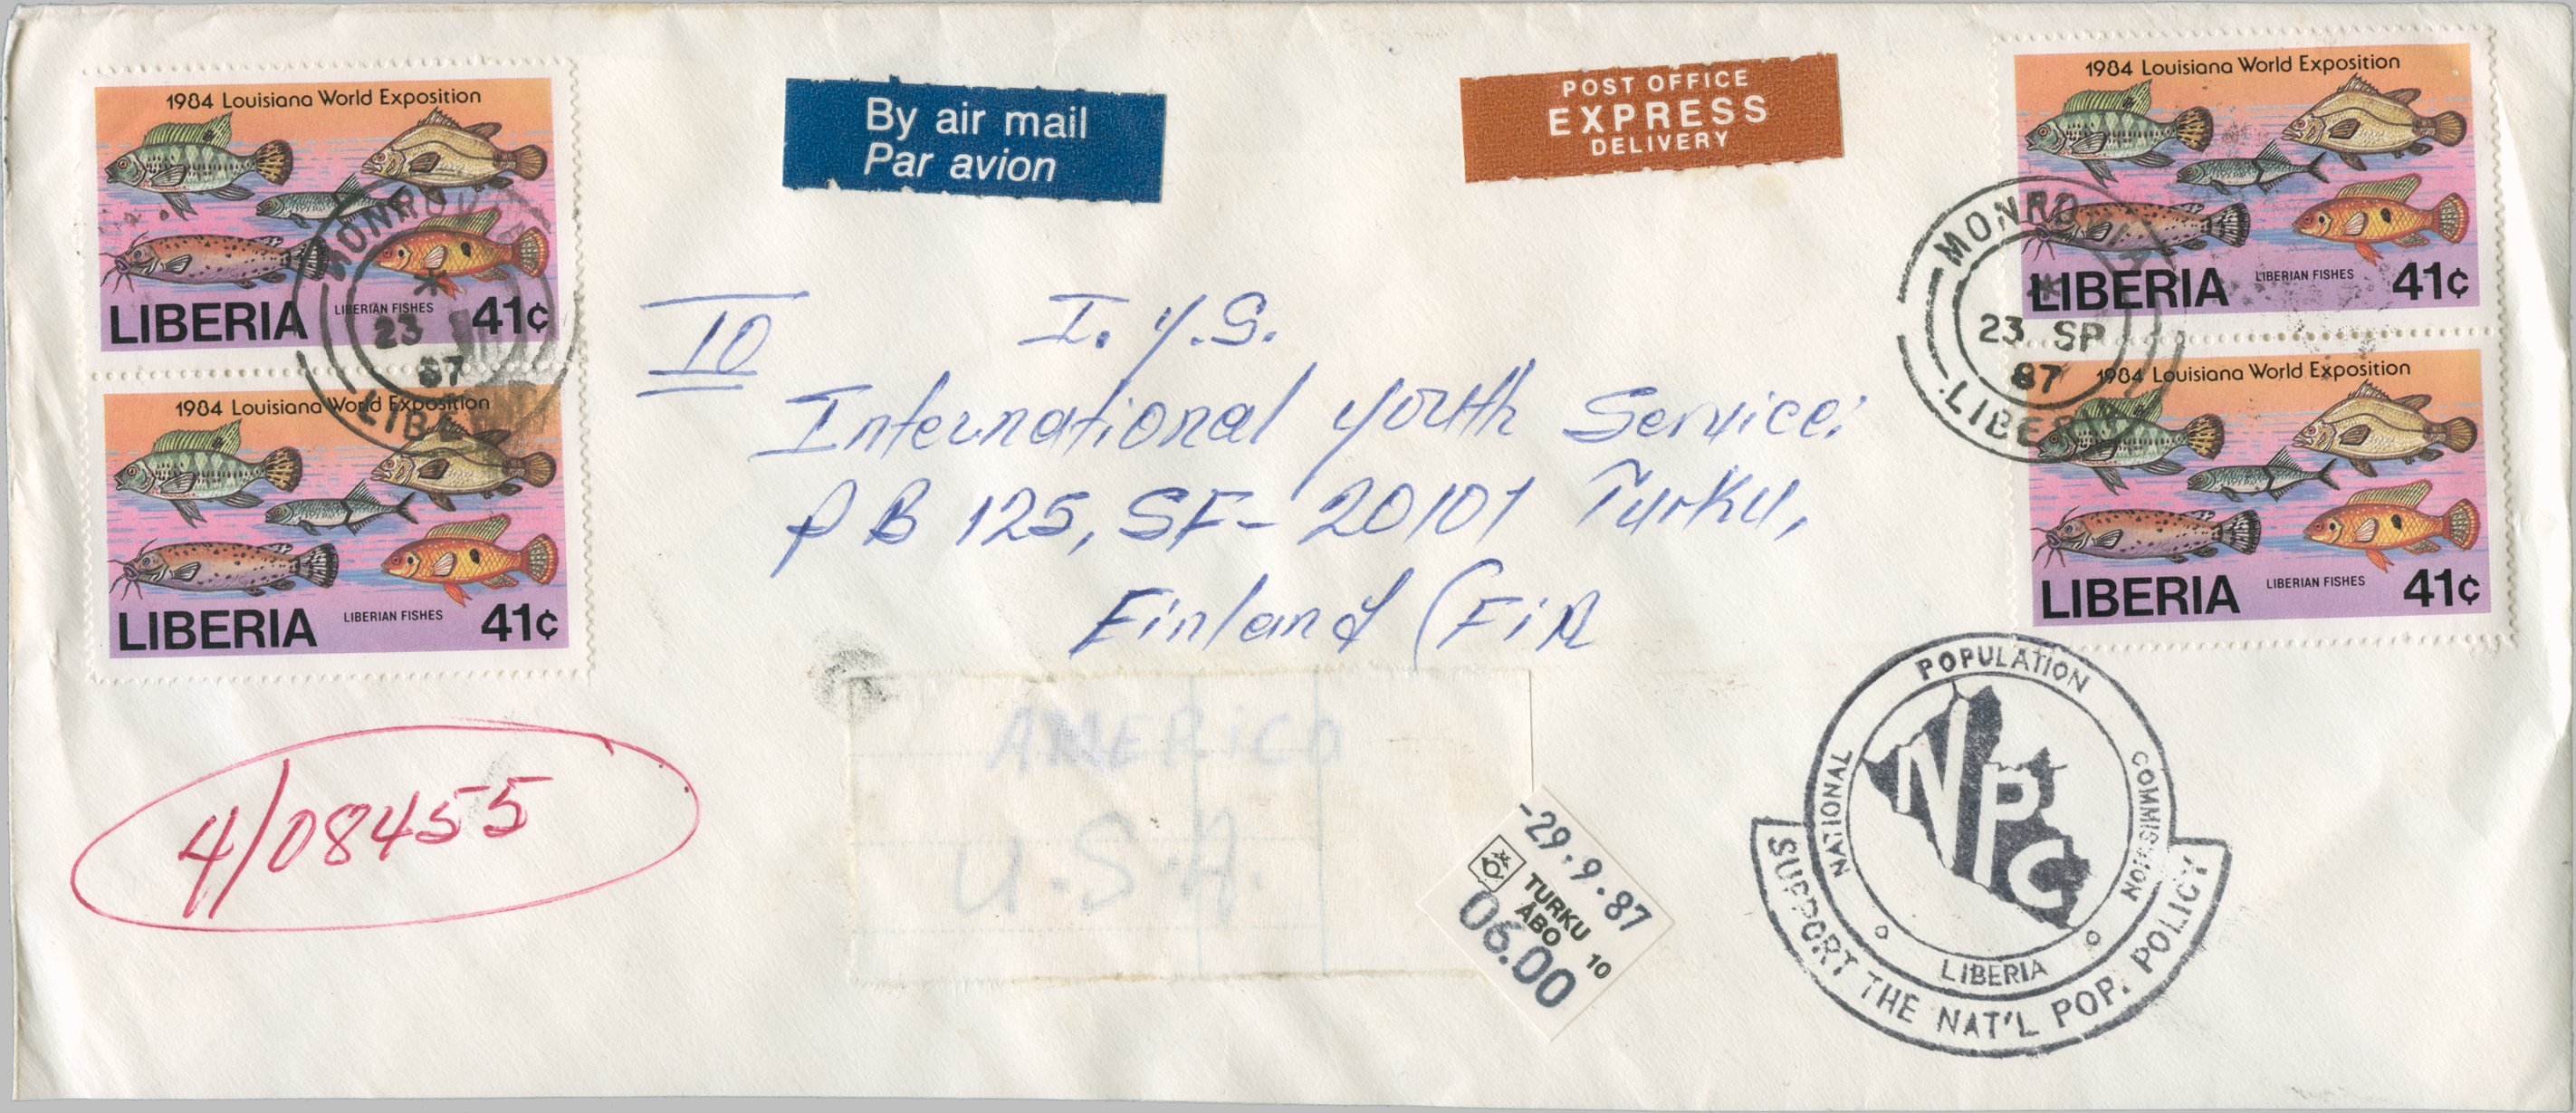 1984 Louisiana World Exposition
LIBERIA LIBERIAN FISHES 41¢
1984 Louisiana World Exposition
LIBERIA LIBERIAN FISHES 41¢
MONROVIA
23
87
LIBE
By air mail
Par avion
POST OFFICE
EXPRESS
DELIVERY
1984 Louisiana World Exposition
LIBERIA LIBERIAN FISHES 41¢
1984 Louisiana World Exposition
LIBERIA LIBERIAN FISHES 41¢
MONROVIA
23 SP
87
LIBERIA
TO
I.Y.S.
International Youth Service:
P B 125, SF- 20101 Turku,
Finland (FiN
AMERiCO
U.S.A.
4/08455
-29.9.87
TURKU
ÅBO 10
06.00
NATIONAL POPULATION COMMISSION
NPC
LIBERIA
SUPPORT THE NAT'L POP. POLICY